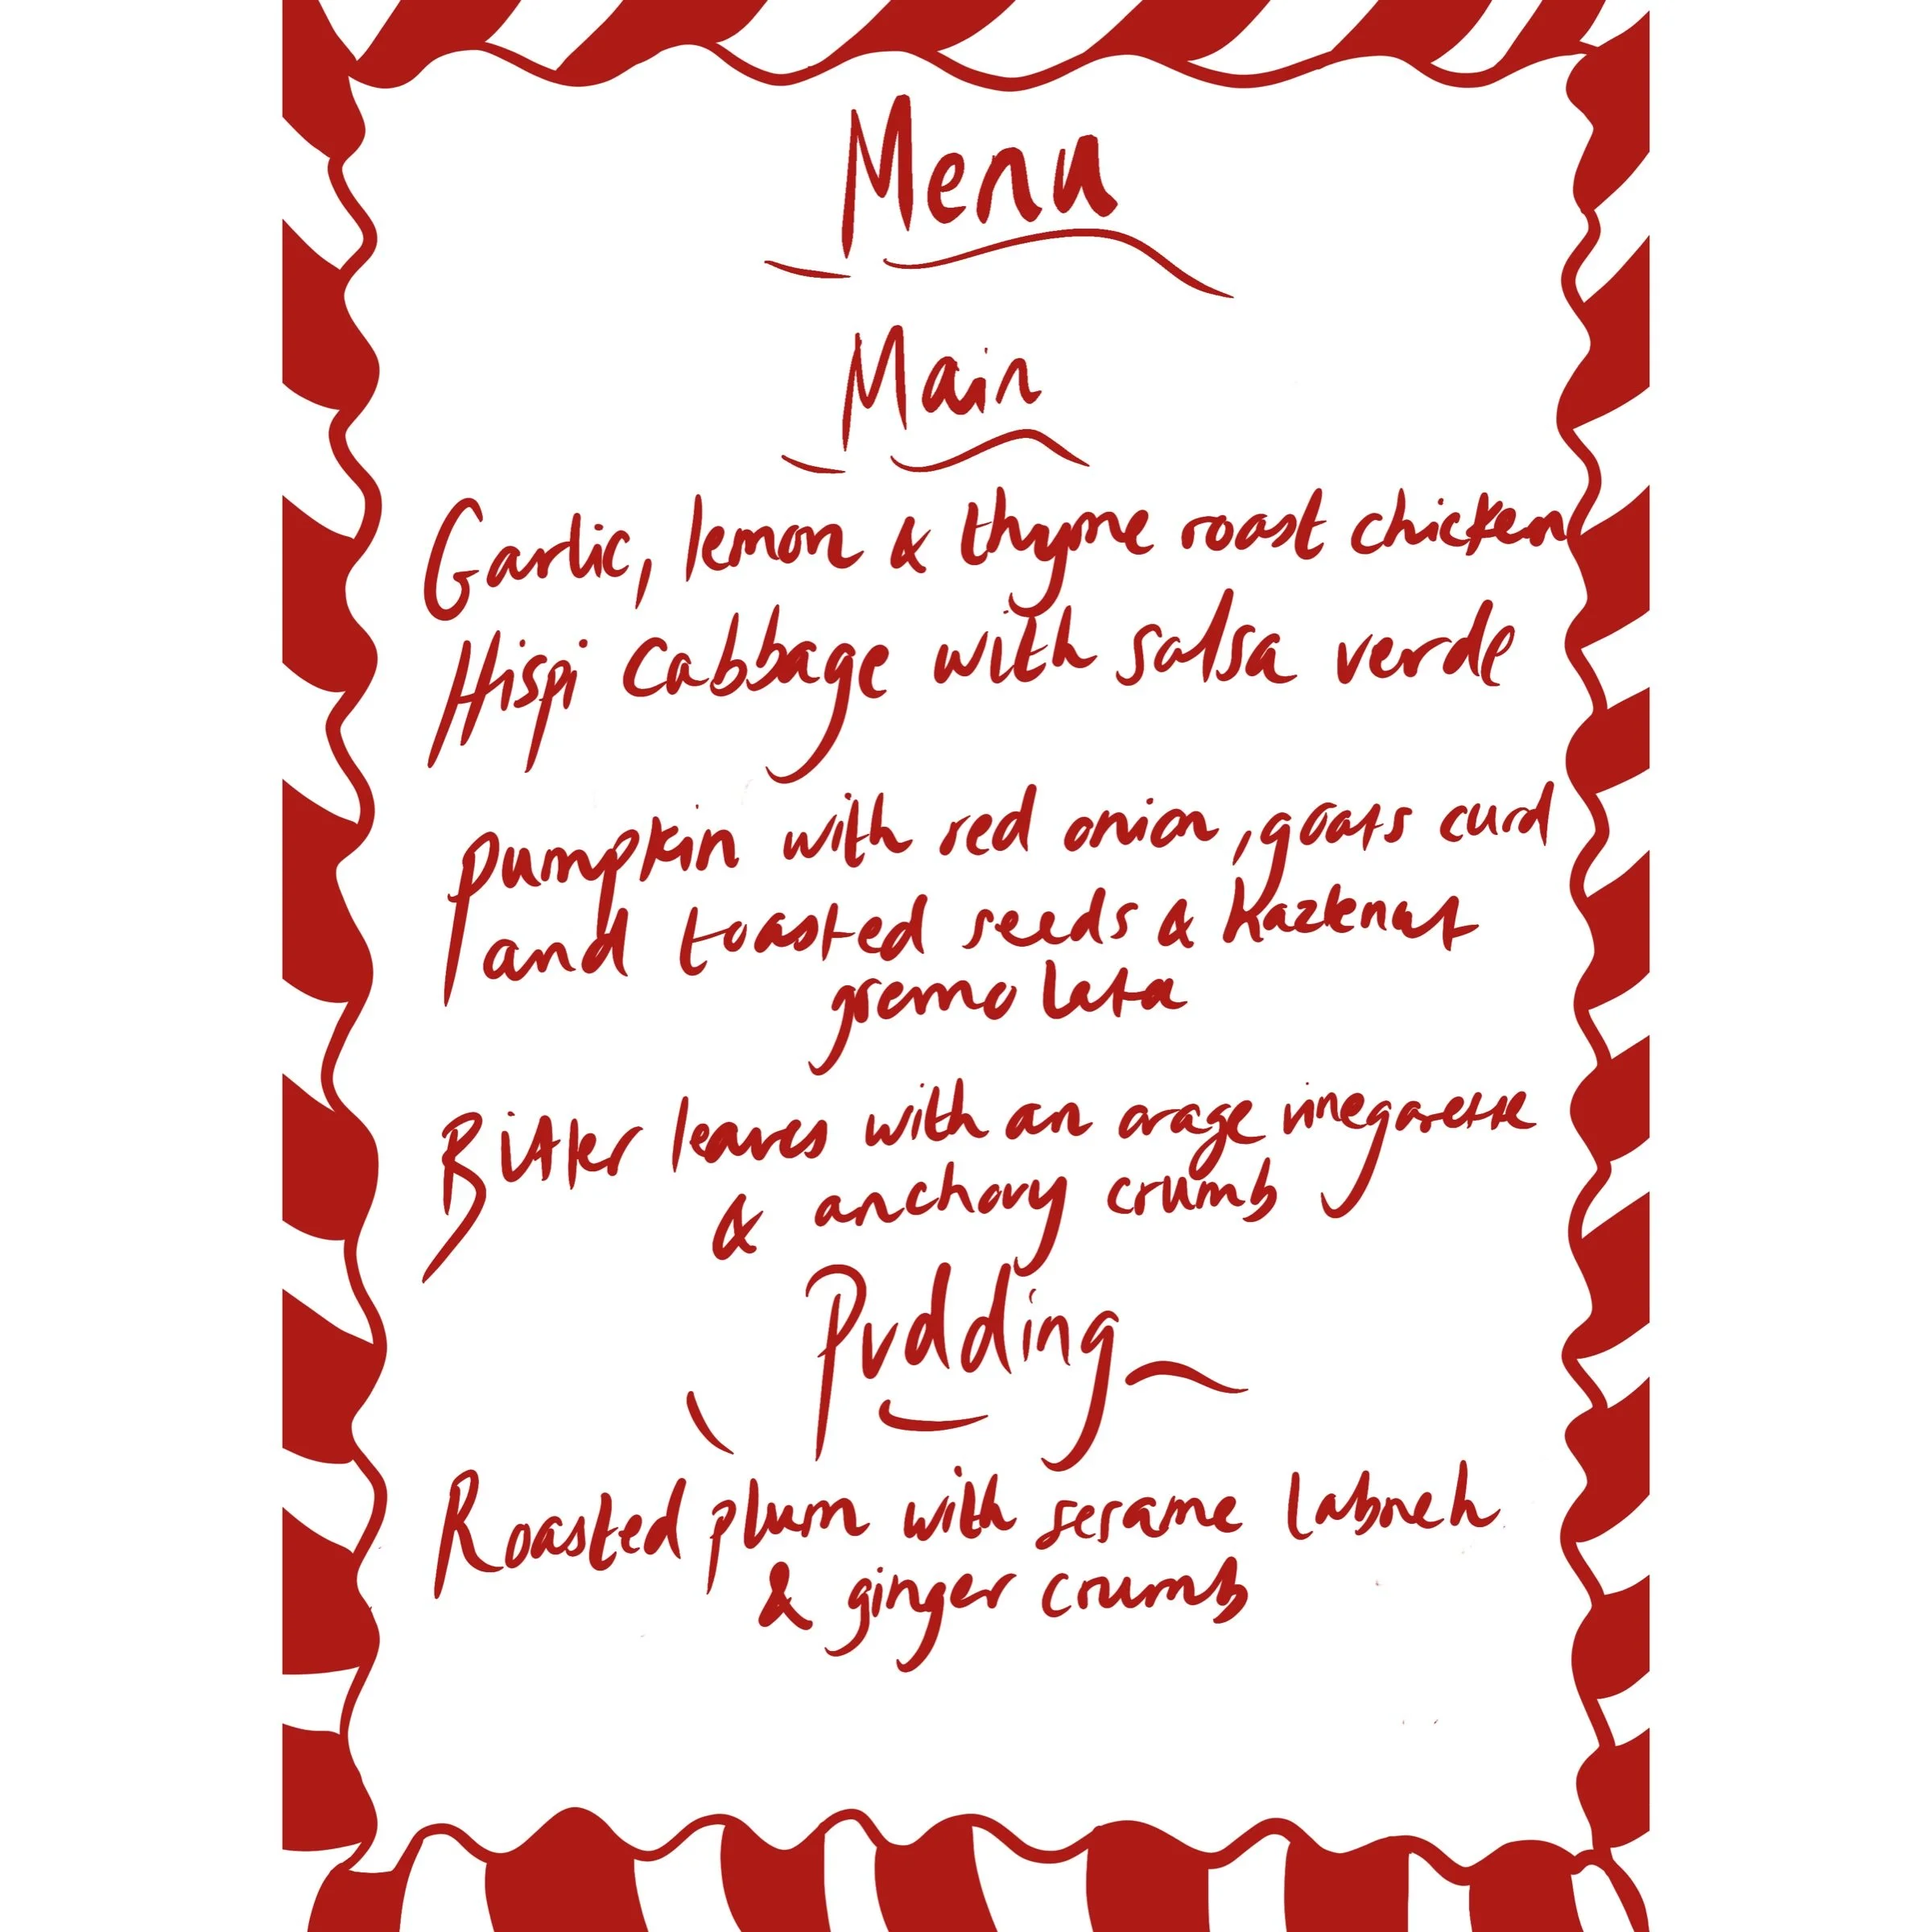 Menu
Main
Garlic, lemon & thyme roast chicken
Hispi cabbage with salsa verde
pumpkin with red onion, goats curd
and toasted seeds & hazelnut
gremolata
Bitter leaves with an orage vinegarette
& anchovy crumb
Pudding
Roasted plum with sesame labneh
& ginger crumb